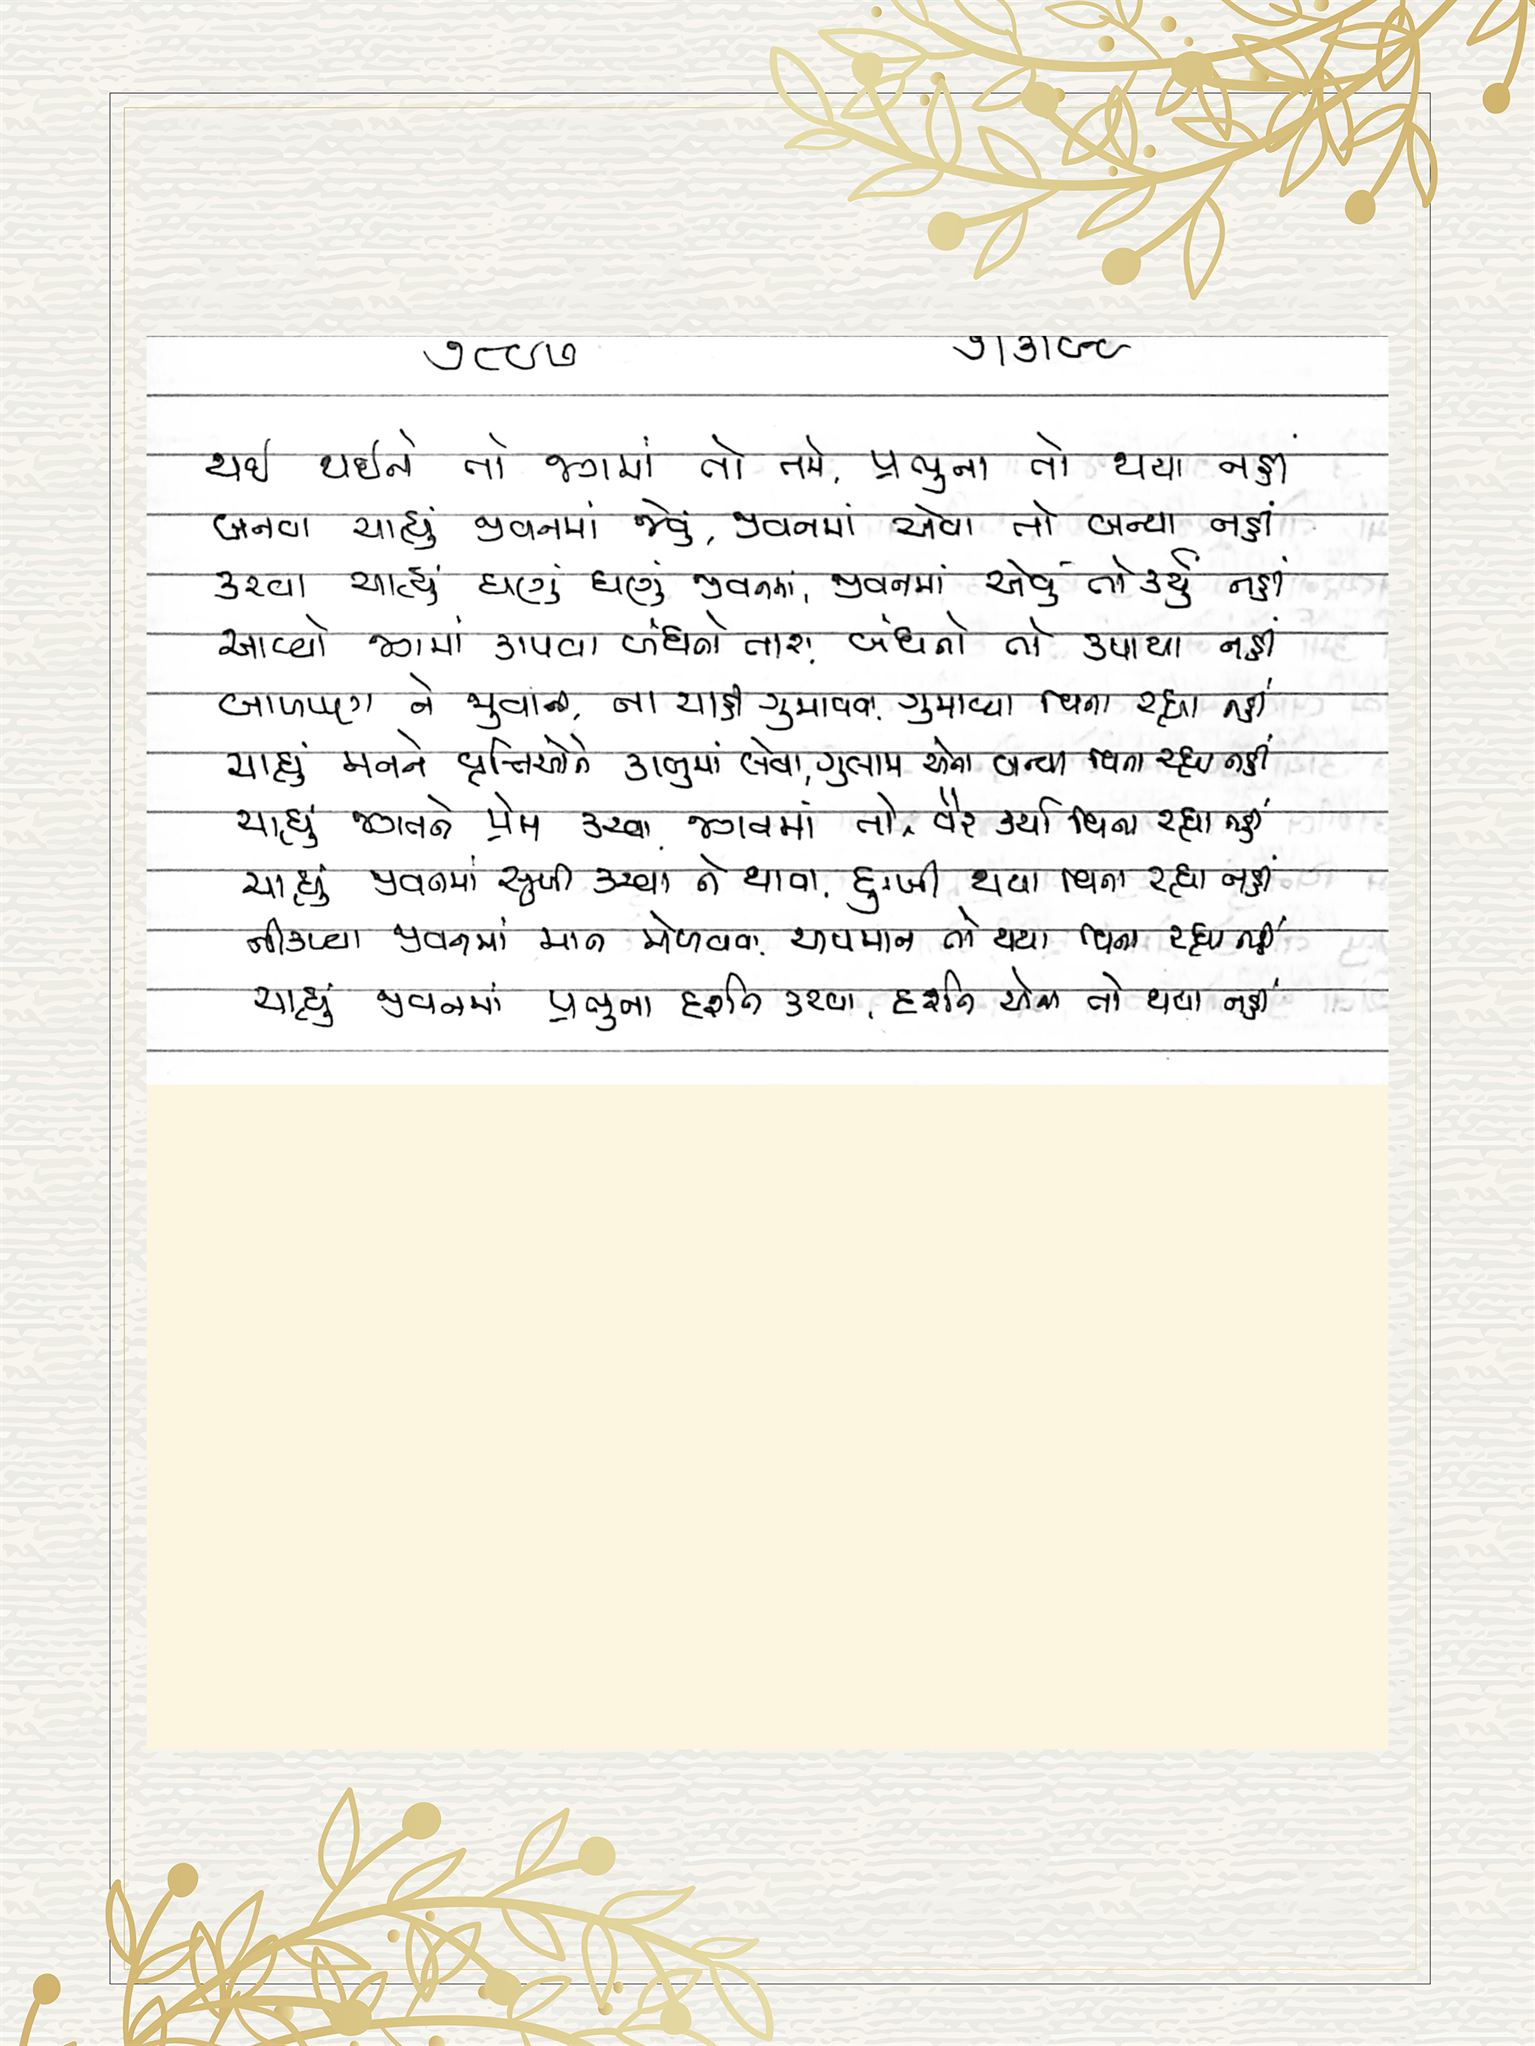 ૭૮૯૭ ૫|૩|૯૯
થઈ થઈને તો જગમાં તો તમે, પ્રભુના તો થયા નહીં
બનવા ચાહ્યું જીવનમાં જેવું, જીવનમાં એવા તો બન્યા નહીં
કરવા ચાહ્યું ઘણું ઘણું જીવનમાં, જીવનમાં એવું તો કર્યું નહીં
આવ્યો જગમાં કાપવા બંધનો તારા, બંધનો તો કપાયા નહીં
બાળપણ ને યુવાની, ના ચાહી ગુમાવવા, ગુમાવ્યા વિના રહ્યા નહીં
ચાહ્યું મનને વૃત્તિઓને કાબુમાં લેવા, ગુલામ એના બન્યા વિના રહ્યા નહીં
ચાહ્યું જગતને પ્રેમ કરવા, જગતમાં તો, વૈર કર્યા વિના રહ્યા નહીં
ચાહ્યું જીવનમાં સુખી કરવા ને થાવા, દુઃખી થયા વિના રહ્યા નહીં
નીકળ્યા જીવનમાં માન મેળવવા, અપમાન તો થયા વિના રહ્યા નહીં
ચાહ્યું જીવનમાં પ્રભુના દર્શન કરવા, દર્શન એના તો થયા નહીં